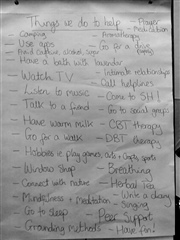 Things we do to help
- Prayer
- Meditation
- Camping
- Aromatherapy
- Use apps
- Go for a drive
- Avoid caffeine, alcohol, sugar
- Have a bath with lavender
- Watch TV
- Intimate relationships
- Call helplines
- Listen to music
- Come to SH!
- Talk to a friend
- Go to social groups
- Have warm milk
- CBT therapy
- Go for a walk
- DBT therapy
- Hobbies ie play games, arts + crafts, sports
- Window Shop
- Breathing
- Connect with nature
- Herbal Tea
- Write a diary
- Mindfulness + Meditation
- Singing
- Go to sleep
- Peer Support
- Grounding methods
- Have fun!